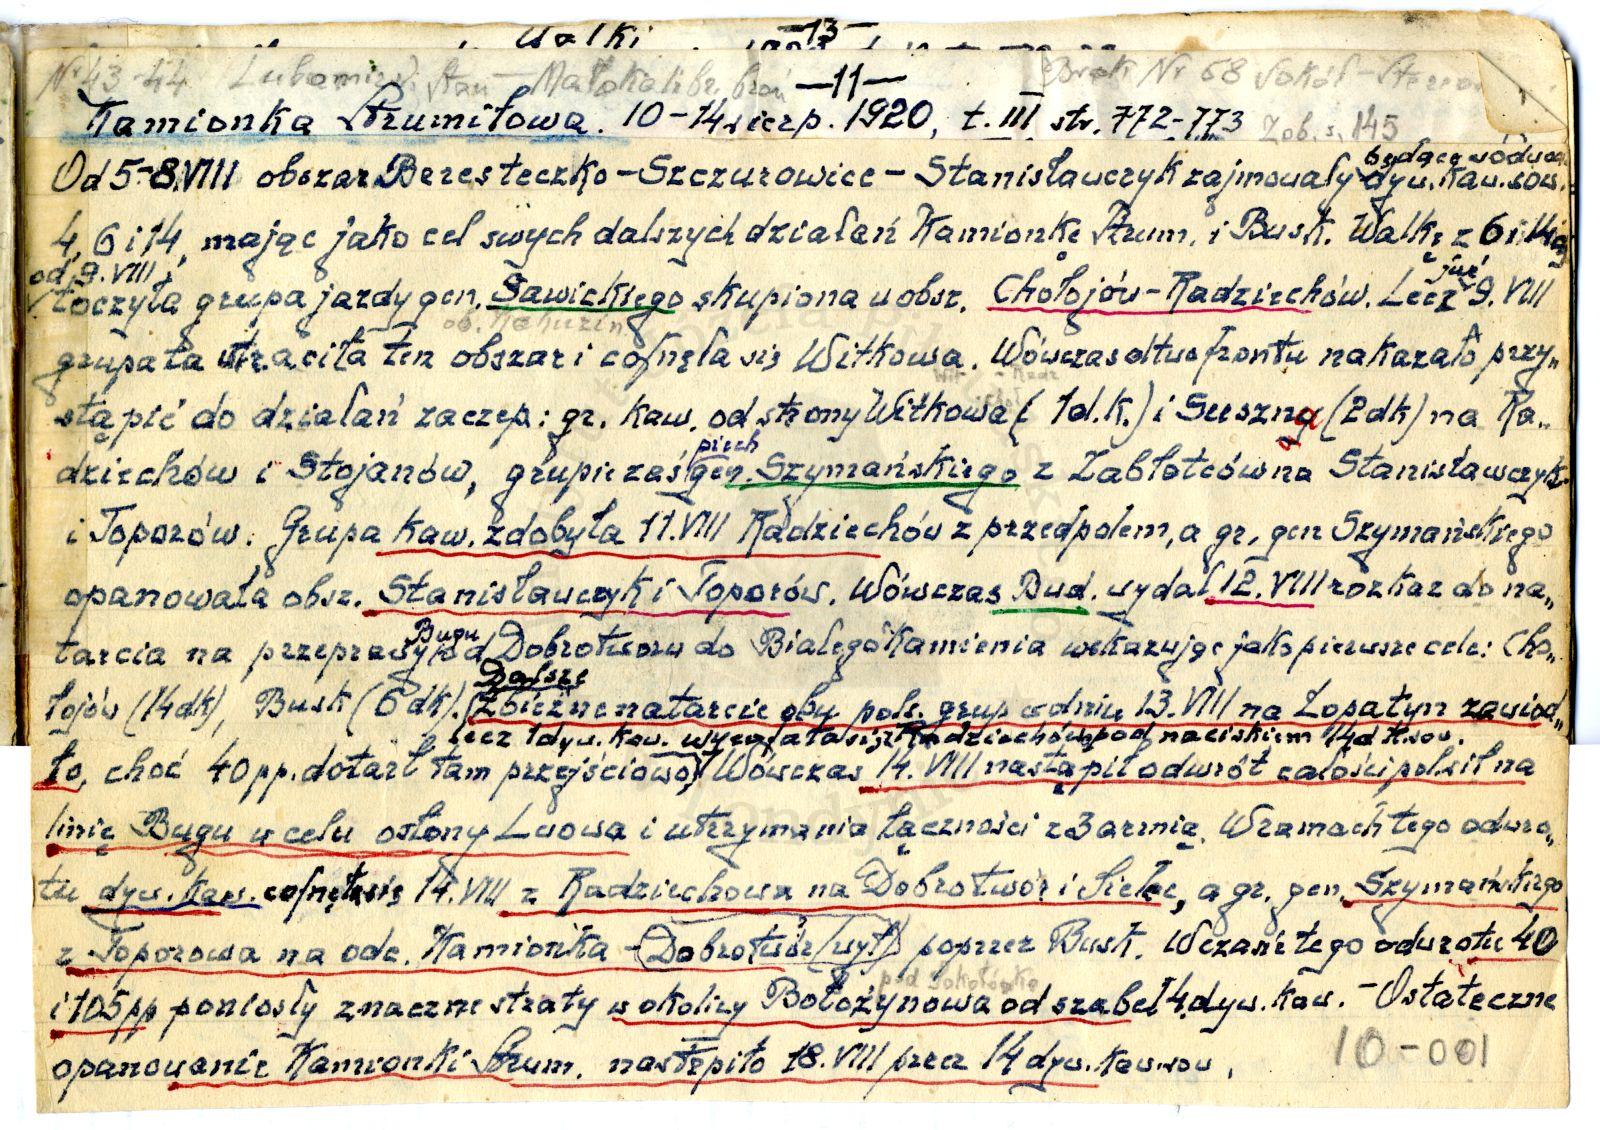 Walki —13—
Nr 43-44 Lubomirski Stan — Małokalibr. broń —11— Brak Nr 68 Sokół —
Kamionka Strumiłowa. 10-14 sierp. 1920, t. III str. 772-773 Zob. s. 145
będące wówczas
Od 5-8.VIII obszar Beresteczko-Szczurowice-Stanisławczyk zajmowały dyw. kaw. sow.
4, 6 i 14, mając jako cel swych dalszych działań Kamionkę Strum. i Busk. Walkę z 6 i 14 dj
od 9.VIII już
toczyła grupa jazdy gen. Sawickiego skupiona w obsz. Chołojów-Radziechów. Lecz 9.VIII
grupa ta straciła ten obszar i cofnęła się Witkowa. Wówczas dtwo frontu nakazało przy„
stąpić do działań zaczep.: gr. kaw. od strony Witkowa (1d.k.) i Suszna (2dk) na Ra„
piech
dziechów i Stojanów, grupie zaś gen. Szymańskiego z Zabłotców na Stanisławczyk
i Toporów. Grupa kaw. zdobyła 11.VIII Radziechów z przedpolem, a gr. gen Szymańskiego
opanowała obsz. Stanisławczyk i Toporów. Wówczas Bud. wydał 12.VIII rozkaz do na„
Bugu
tarcia na przeprawy od Dobrotworu do Białego Kamienia wskazując jako pierwsze cele: Cho„
Dalsze
łojów (14dk), Busk (6dk). Zbieżne natarcie obu pols. grup w dniu 13.VIII na Łopatyn zawiod„
lecz 1 dyw. kaw. wycofała się z Radziechowa pod naciskiem 14 d K. sow.
ło, choć 40 pp. dotarł tam przejściowo, Wówczas 14.VIII nastąpił odwrót całości pol sił na
linię Bugu w celu osłony Lwowa i utrzymania łączności z 3 armią. W ramach tego odwro„
tu dyw. kaw. cofnęła się 14.VIII z Radziechowa na Dobrotwór i Sielec, a gr. gen. Szymańskiego
z Toporowa na odc. Kamionka-Dobrotwór (wył) poprzez Busk. W czasie tego odwrotu 40
pod Sokołówką
i 105 pp poniosły znaczne straty w okolicy Bołożynowa od szabel 4 dyw. kaw. - Ostateczne
opanowanie Kamionki Strum. nastąpiło 18.VIII przez 14 dyw. kaw. sow.
10-001